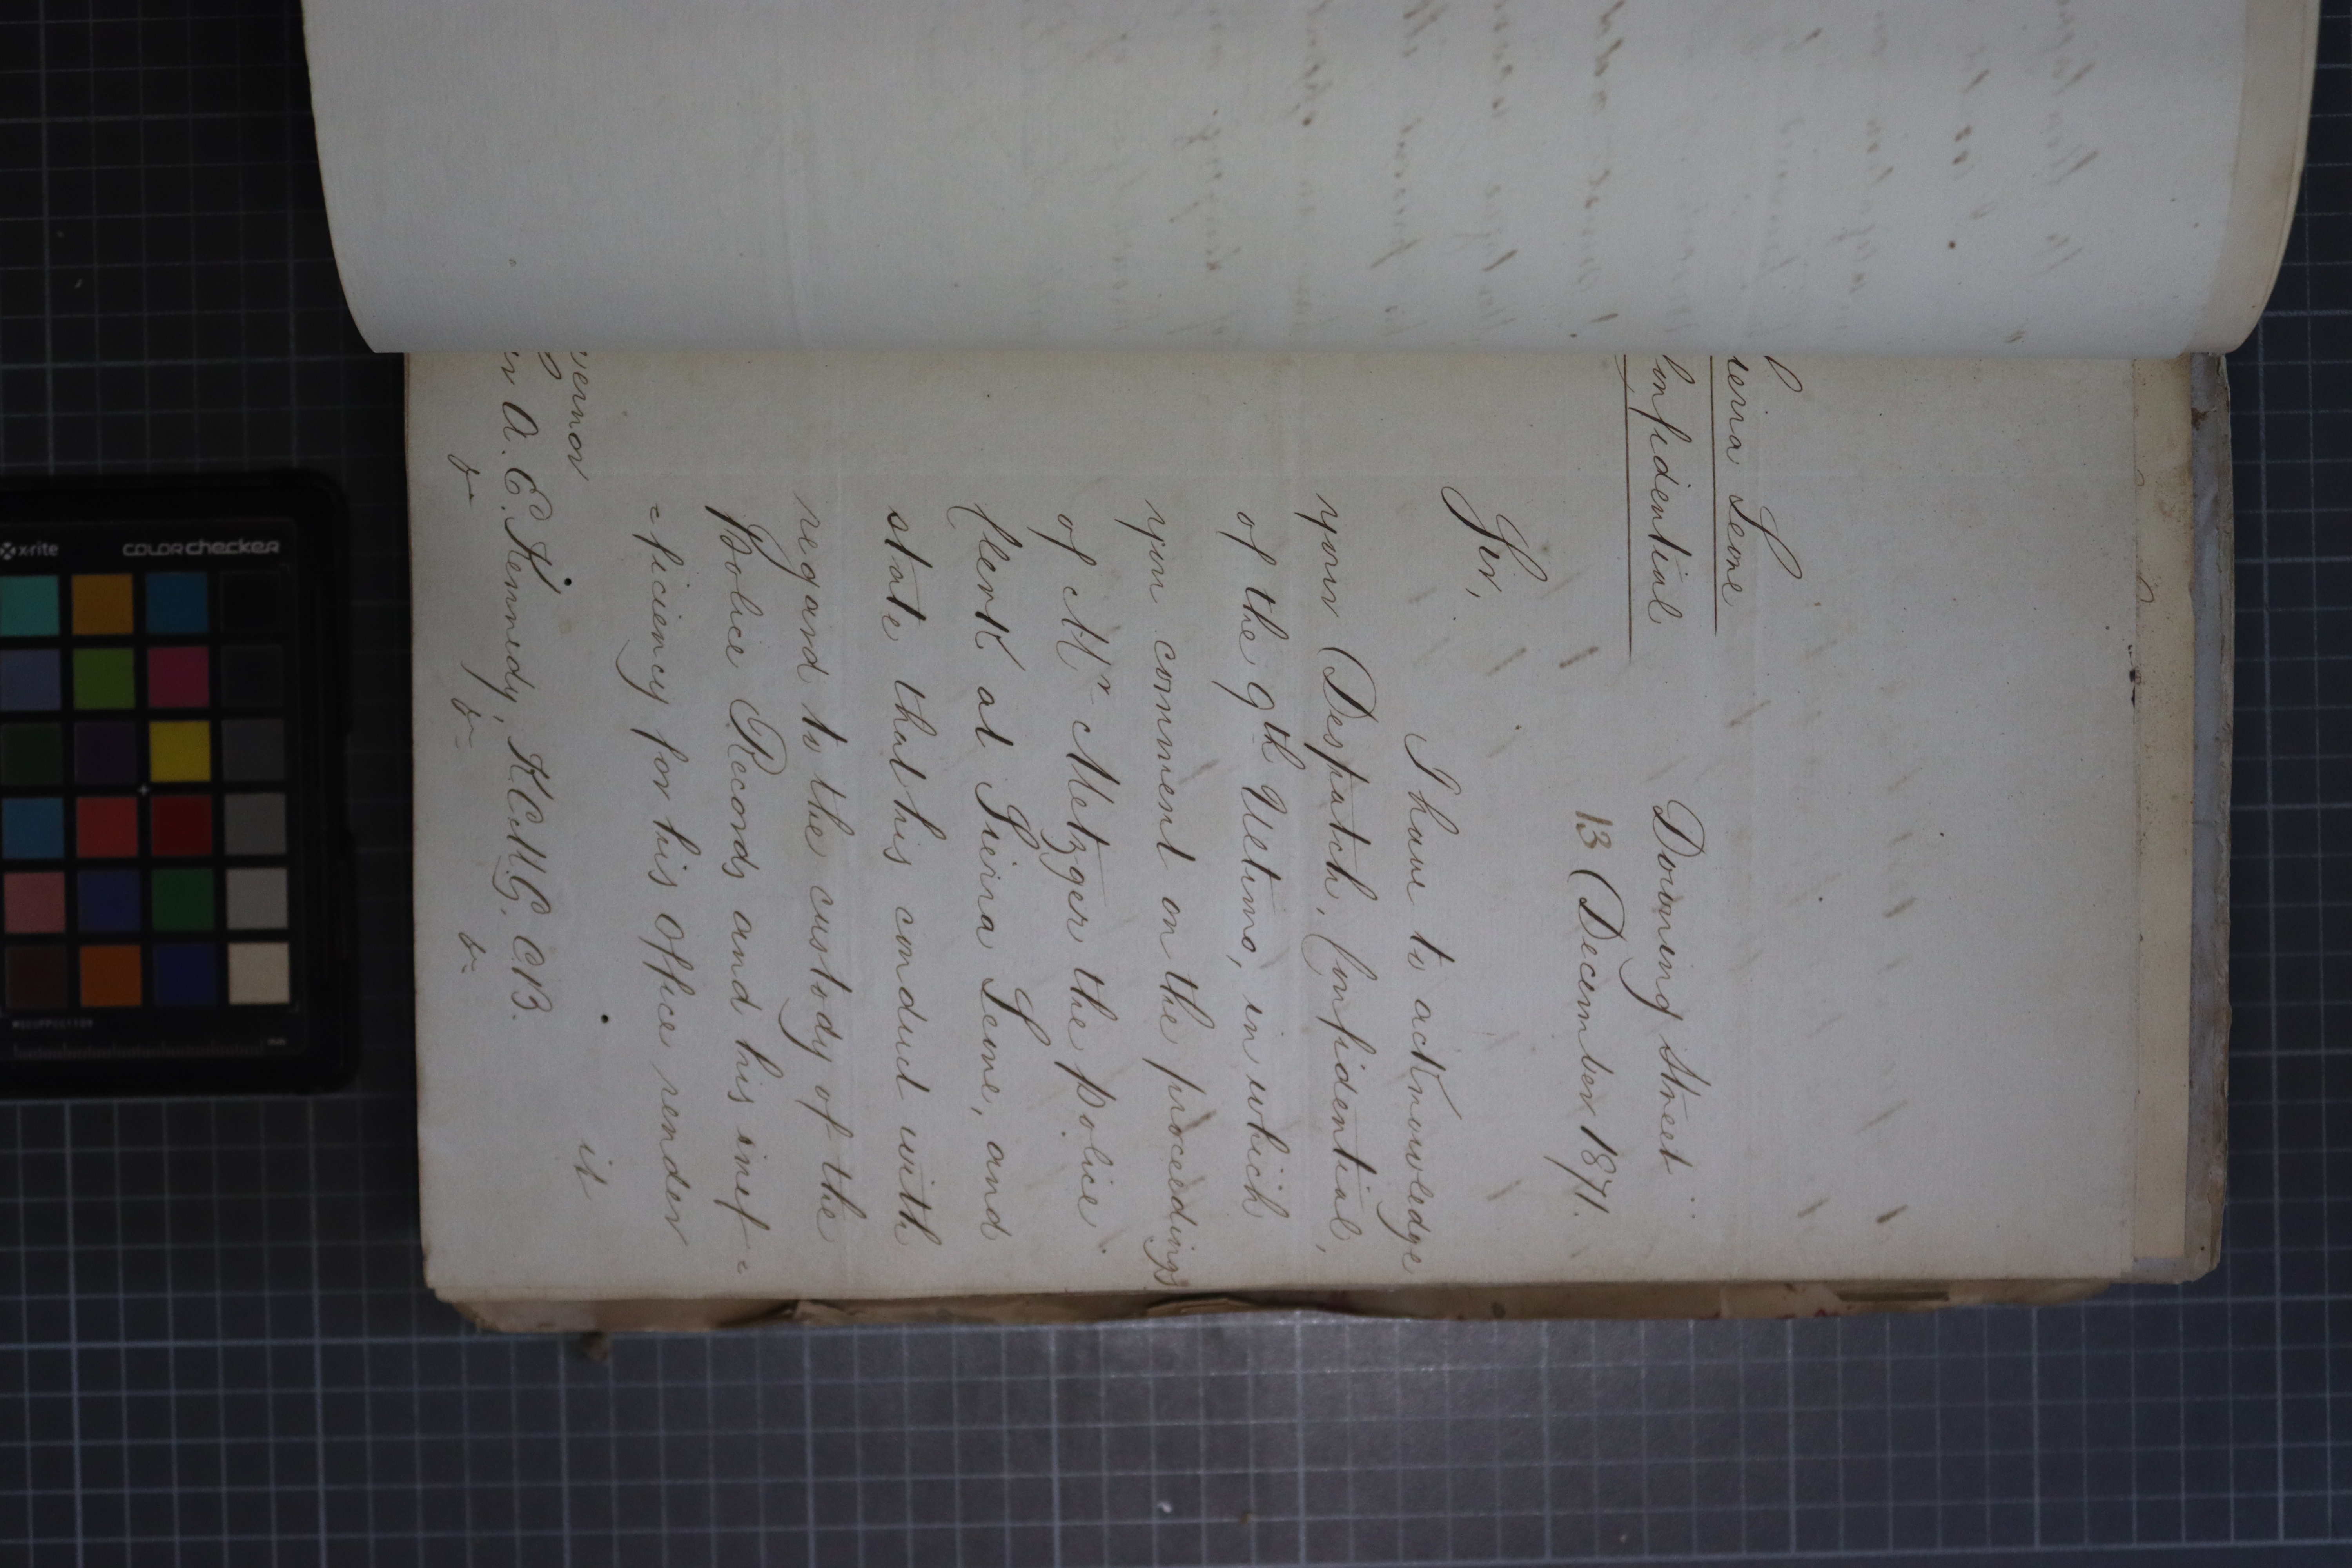 ierra Leone
Confidential
Downing Street
13 December 1871.
Sir,
I have to acknowledge
your Despatch, Confidential,
of the 9th Ultimo, in which
you comment on the proceedings
of Mr Metzger the police
Clerk at Sierra Leone, and
state that his conduct with
regard to the custody of the
Police Records and his inef=
=ficiency for his Office render
it
vernor
ir A. E. Kennedy, K.C.M.G. C.B.
x-rite
COLORchecker